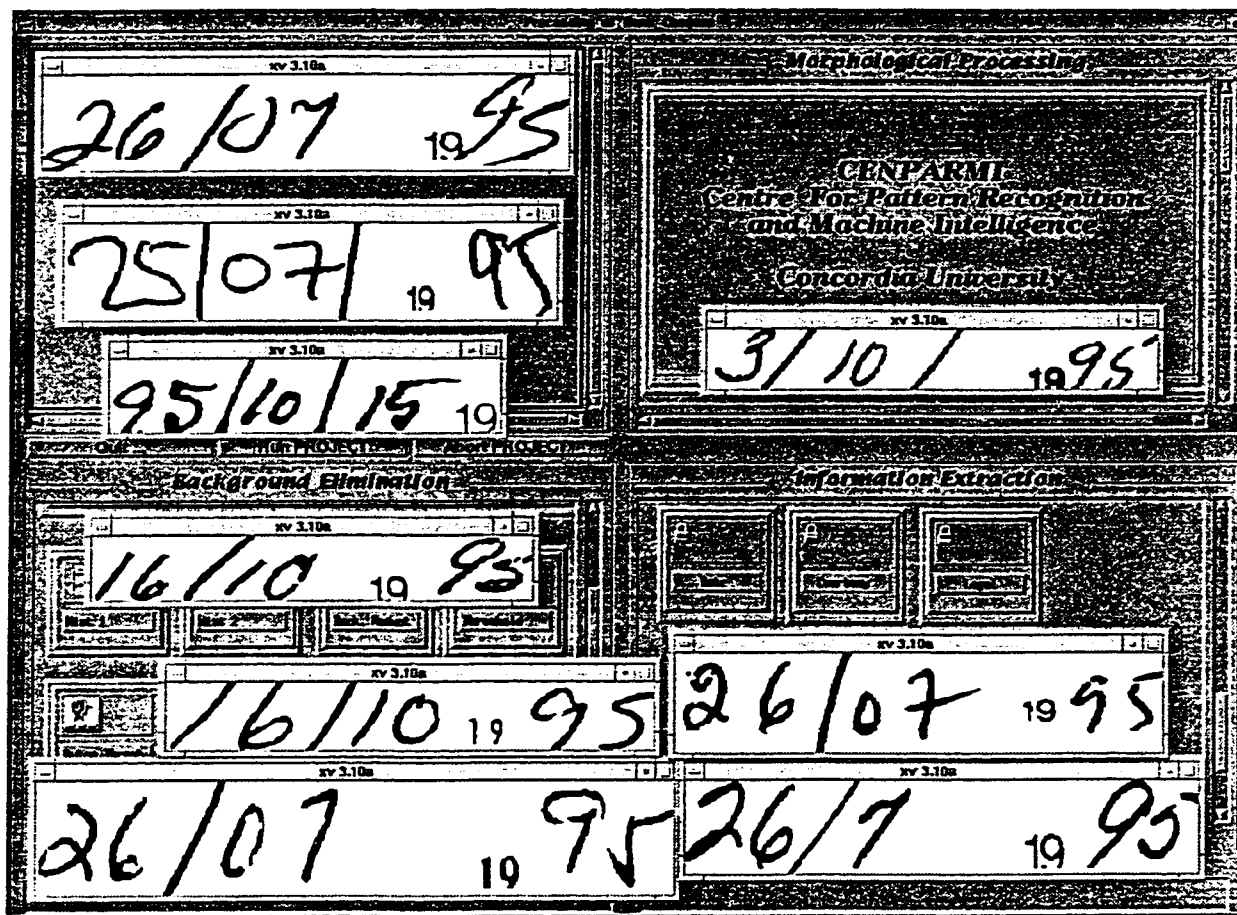 xv 3.10a
26/07 1995
xv 3.10a
25/07/ 1995
xv 3.10a
95/10/15 19
Morphological Processing
CENPARMI
Centre For Pattern Recognition
and Machine Intelligence
Concordia University
xv 3.10a
3/10/ 1995
Quit
Run PROJECT
Abort PROJECT
Background Elimination
xv 3.10a
16/10 1995
xv 3.10a
16/10 1995
xv 3.10a
26/07 1995
Information Extraction
xv 3.10a
26/07 1995
xv 3.10a
26/7 1995